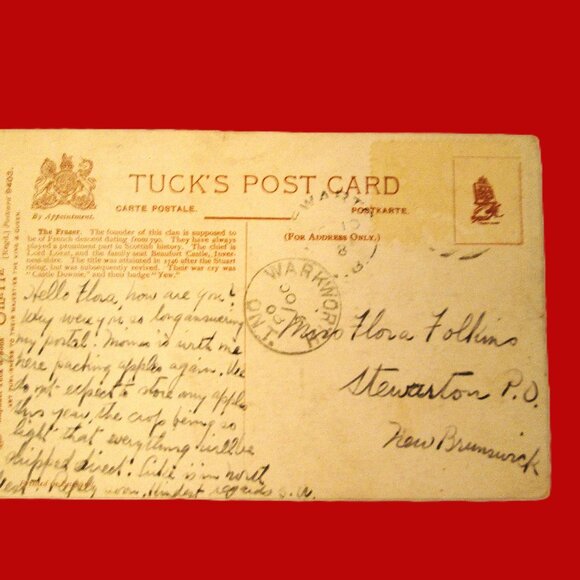 TUCK'S POST CARD
By Appointment.
CARTE POSTALE.
POSTKARTE.
(FOR ADDRESS ONLY.)
The Fraser. The founder of this clan is supposed to
be of French descent dating from 790. They have always
played a prominent part in Scottish history. The chief is
Lord Lovat, and the family seat Beaufort Castle, Inver-
ness-shire. The title was attainted in 1746 after the Stuart
rising, but was subsequently revived. Their war cry was
"Castle Downie," and their badge "Yew."
WARKWORTH
ONT.
Hello Flora, how are you?
why were you so long answering
my postal? Momma is with me
here packing apples again. We
do not expect to store any apples
this year, the crop being so
light that everything will be
shipped direct. is in north
west. Reply soon. Kindest regards
Miss Flora Folkins
Stewarton P.O.
New Brunswick
Postcard 9483.